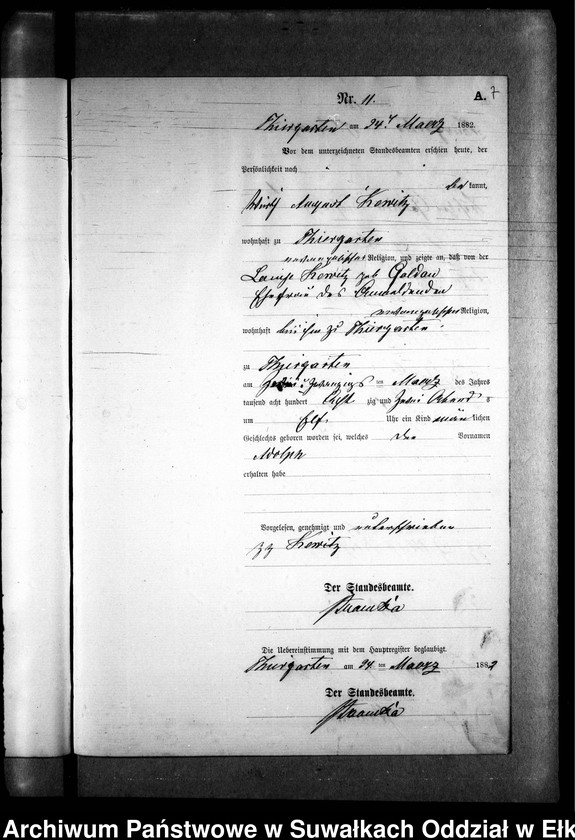 Nr. 11.
A. 7
Thiergarten am 24t Maerz 1882.
Vor dem unterzeichneten Standesbeamten erschien heute, der
Persönlichkeit nach
be kannt,
Wirth August Kewitz
wohnhaft zu Thiergarten
evangelischer Religion, und zeigte an, daß von der
Louise Kewitz geb Goldau
Ehefrau des Anmeldenden
evangelischer Religion,
wohnhaft bei ihm zu Thiergarten
zu Thiergarten
am zwanzig ten Maerz des Jahres
tausend acht hundert acht zig und zwei Abends
um Elf Uhr ein Kind männ lichen
Geschlechts geboren worden sei, welches den Vornamen
Adolph
erhalten habe
Vorgelesen, genehmigt und unterschrieben
gz Kewitz
Der Standesbeamte.
Die Uebereinstimmung mit dem Hauptregister beglaubigt.
Thiergarten am 24 ten Maerz 1882
Der Standesbeamte.
Archiwum Państwowe w Suwałkach Oddział w Ełk